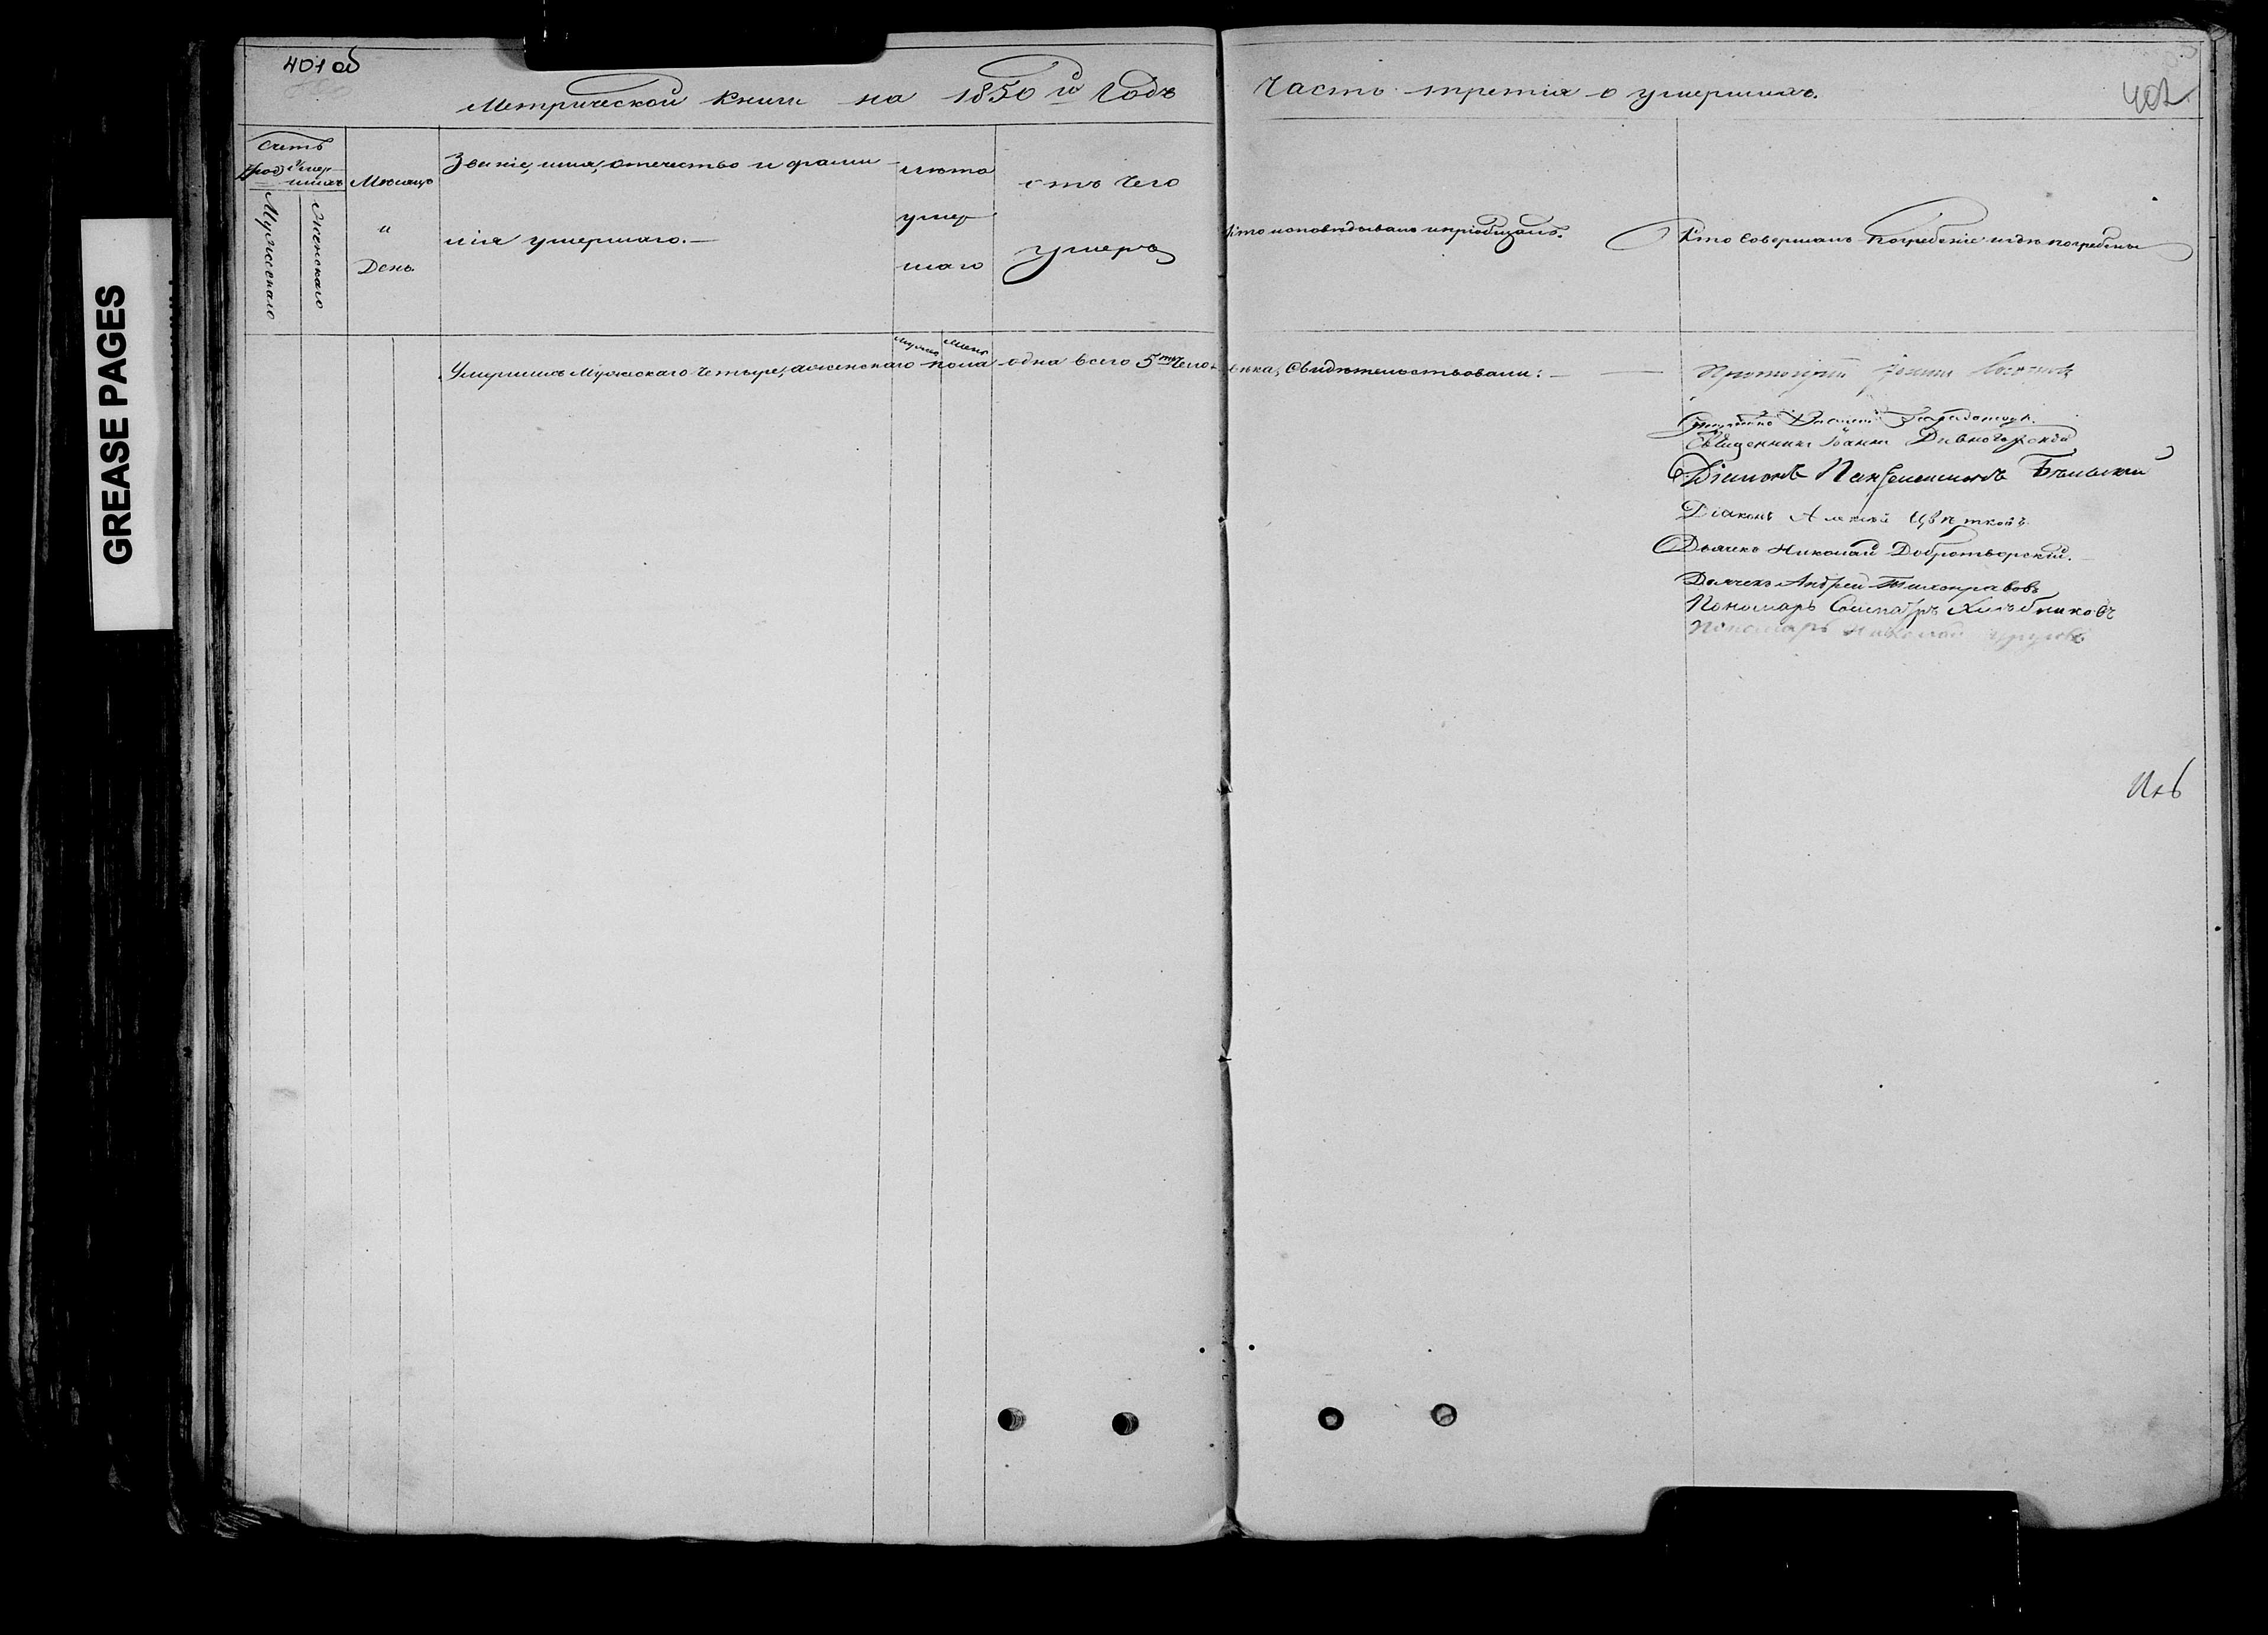 401 об
402
GREASE PAGES
Метрической книги на 1850 й Годъ
Часть третія о умершихъ.
Счетъ
умер-
шихъ
Мужескаго
Женскаго
Мѣсяцъ
и
День
Званіе, имя, отечество и фами-
лія умершаго.—
лѣта
умер
шаго
отъ чего
умеръ
Кто исповѣдывалъ и пріобщалъ.
Кто совершалъ погребеніе и гдѣ погребены
Умершихъ Мужескаго четыре, а женскаго пола одна всего 5ть Чело-
вѣка, Свидѣтельствовали: —
Протоіерей
Священникъ Василій
Священникъ Іоаннъ Дивногорскій
Діаконъ Пантелеимонъ Бѣльскій
Діаконъ Алексѣй Цвѣтковъ
Дьячекъ Николай Добротворскій.
Дьячекъ Андрей Тихонравовъ
Пономарь Сосипатръ Хлѣбниковъ
Пономарь Николай